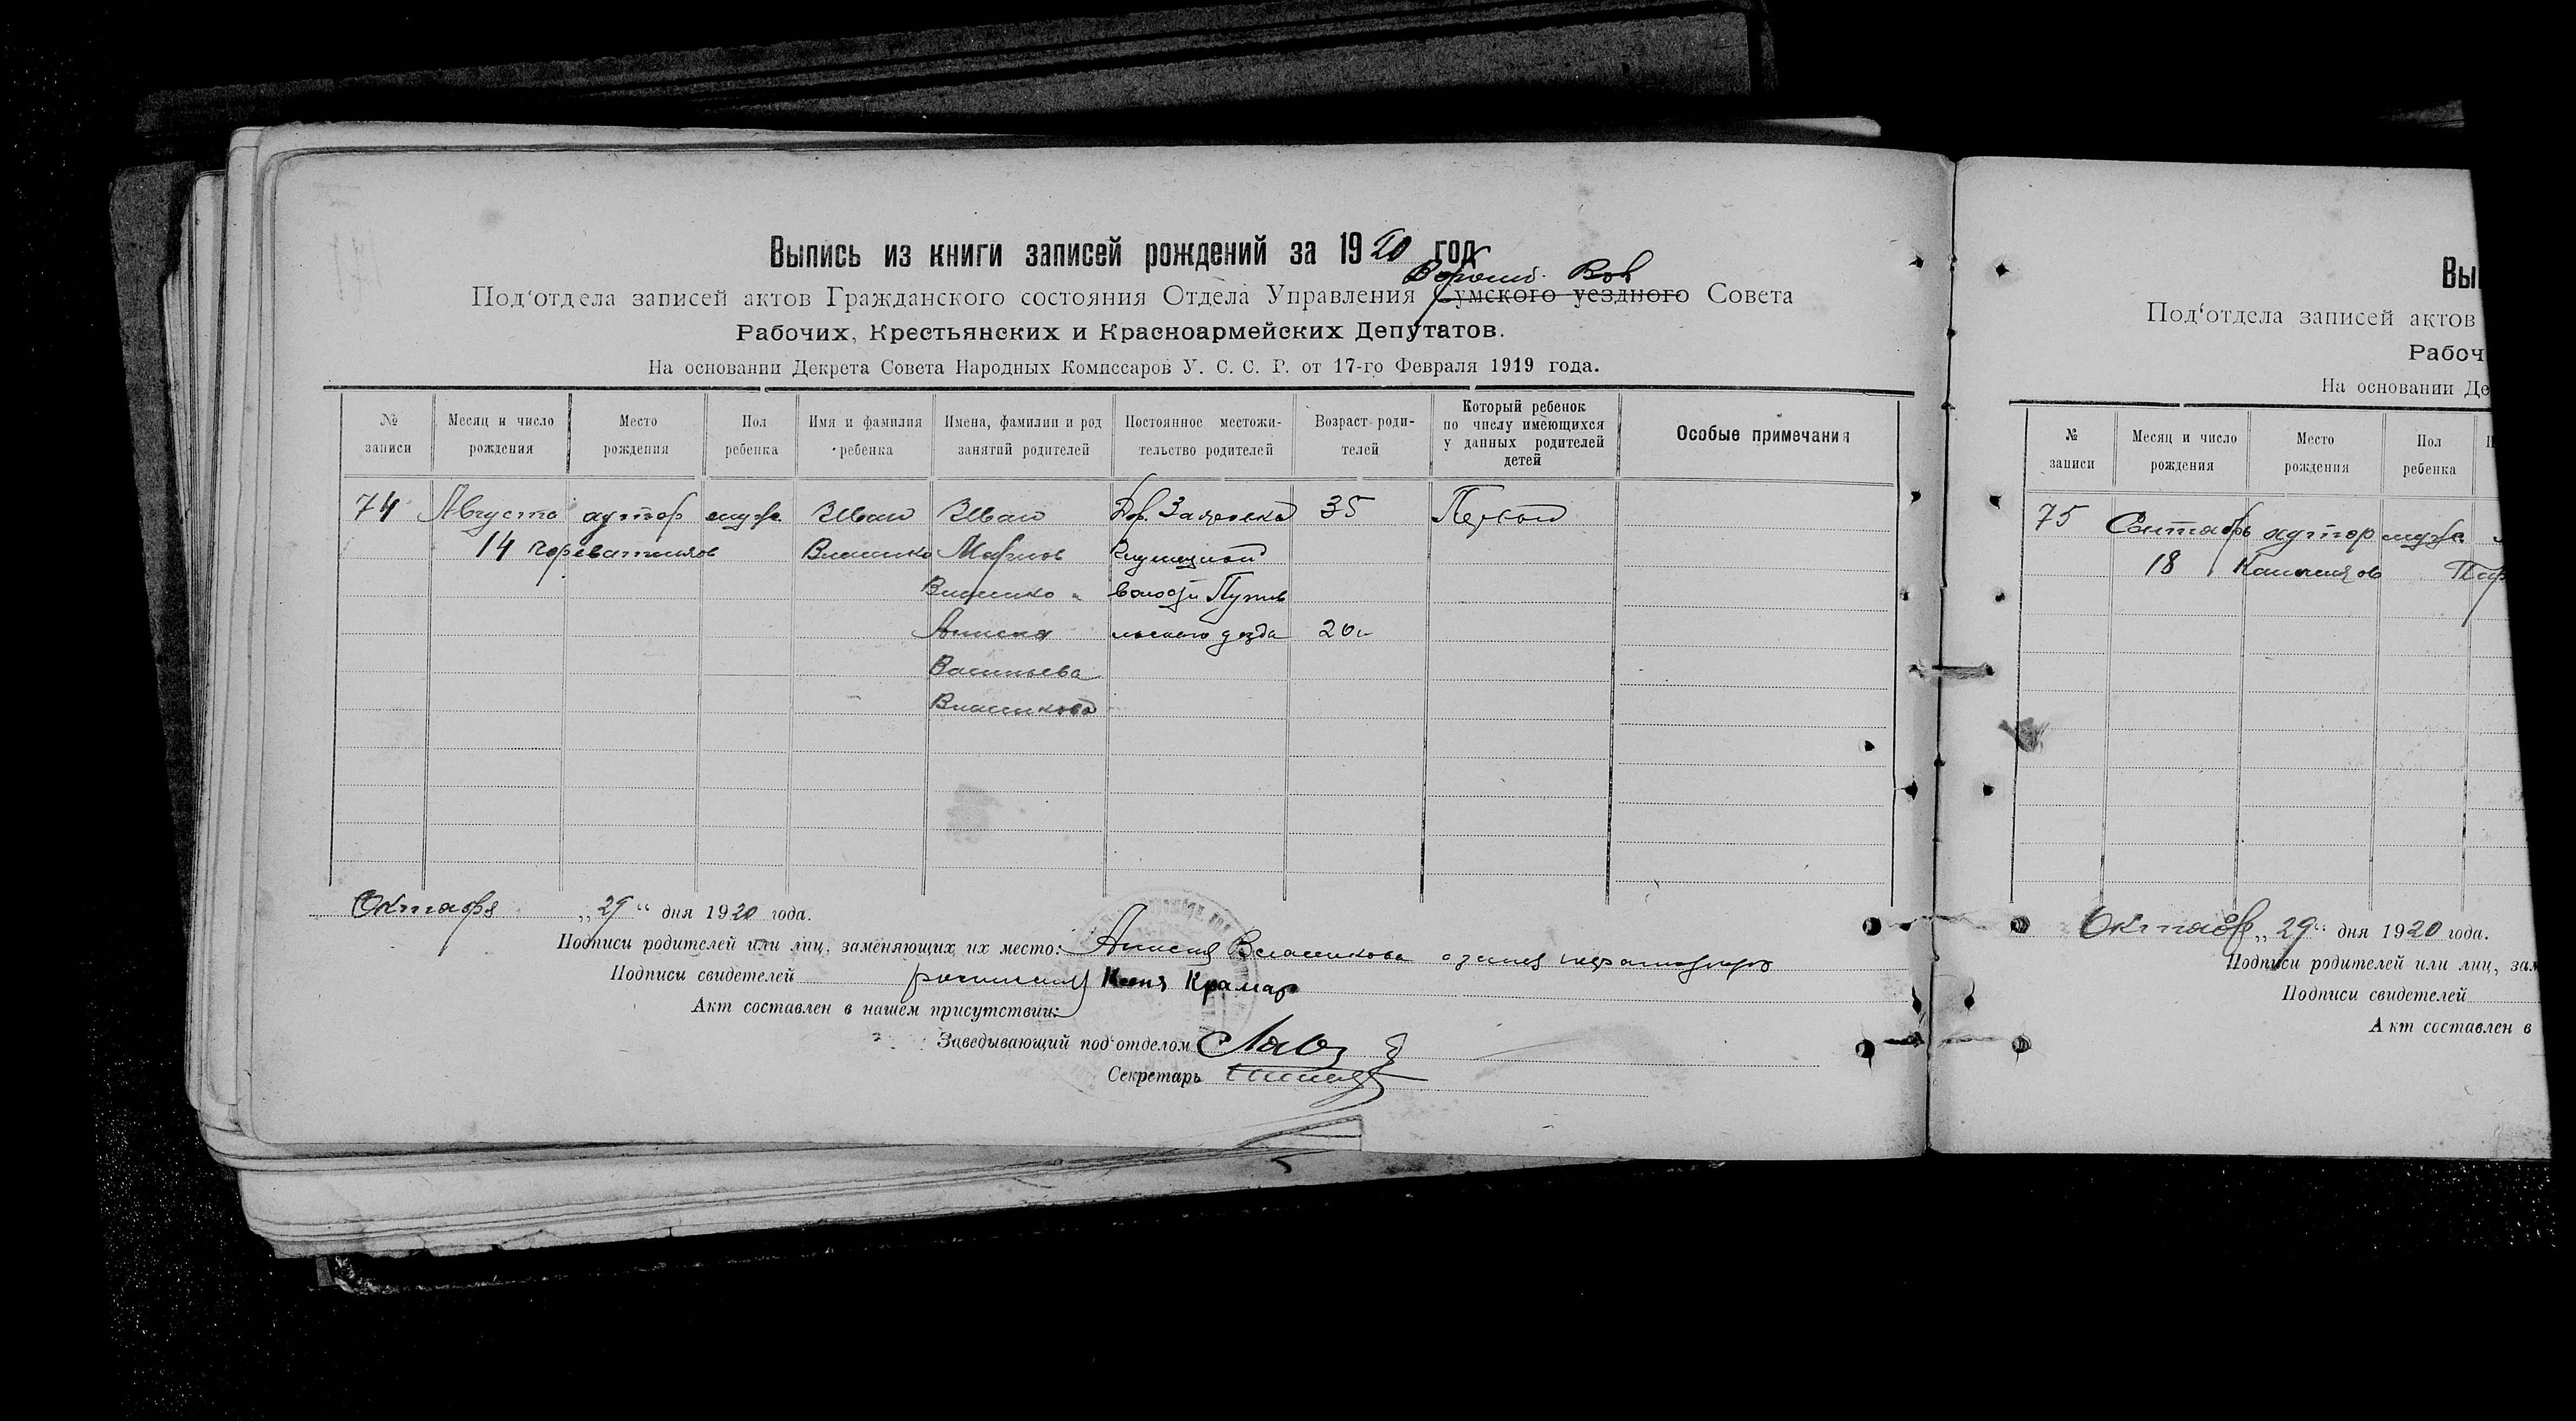 Выпись из книги записей рождений за 1920 год
Ворош. Вол
Под'отдела записей актов Гражданского состояния Отдела Управления Сумского уездного Совета
Рабочих, Крестьянских и Красноармейских Депутатов.
На основании Декрета Совета Народных Комиссаров У. С. С. Р. от 17-го Февраля 1919 года.
№ записи
Месяц и число рождения
Место рождения
Пол ребенка
Имя и фамилия ребенка
Имена, фамилии и род занятий родителей
Постоянное местожительство родителей
Возраст родителей
Который ребенок по числу имеющихся у данных родителей детей
Особые примечания
74 Августа хутор муж. Иван Иван Дер. 35 Первый
14
Власенко
волости Путив
льского уезда 20
Васильева
Власенкова
Октября „29“ дня 1920 года.
Подписи родителей или лиц, заменяющих их место: Власенкова
Подписи свидетелей Крамар
Акт составлен в нашем присутствии:
Заведывающий под'отделом
Секретарь
Вы
Под'отдела записей актов
Рабоч
На основании Де
№ записи
Месяц и число рождения
Место рождения
Пол ребенка
75 Сентябрь хутор муж.
18
Октября „29“ дня 1920 года.
Подписи родителей или лиц, зам
Подписи свидетелей
Акт составлен в